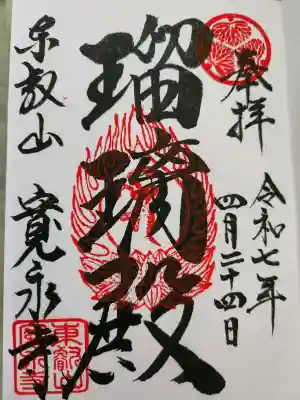 奉拝
令和七年
四月二十四日
瑠璃殿
東叡山
寛永寺
東叡山
寛永寺